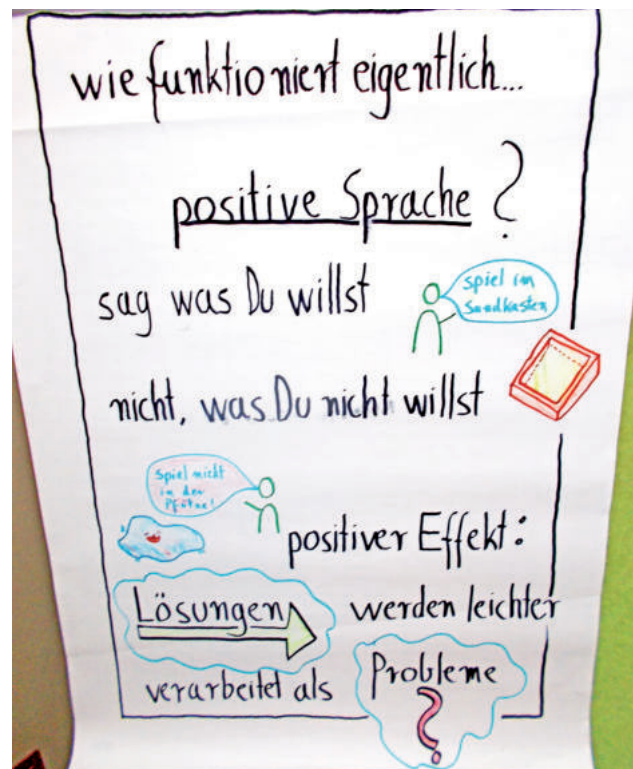 wie funktioniert eigentlich...
positive Sprache ?
sag was Du willst
spiel im
Sandkasten
nicht, was Du nicht willst
Spiel nicht
in der
Pfütze!
positiver Effekt:
Lösungen werden leichter
verarbeitet als Probleme
?